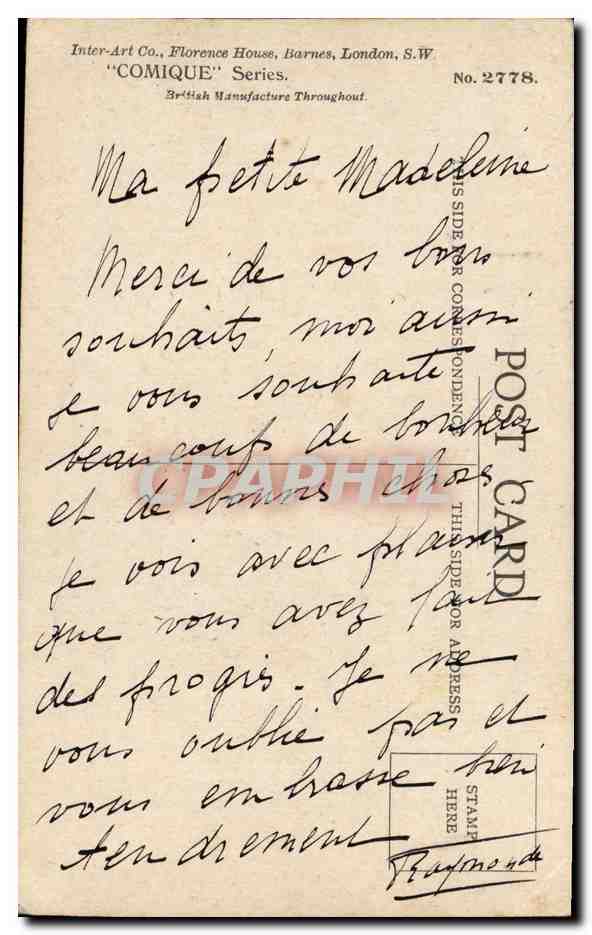 Inter-Art Co., Florence House, Barnes, London, S.W.
"COMIQUE" Series.
No. 2778.
British Manufacture Throughout.
Ma petite Madeleine
Merci de vos bons
souhaits, moi aussi
je vous souhaite
beaucoup de bonheur
et de bonnes choses
je vois avec plaisir
que vous avez fait
des progrès. Je ne
vous oublie pas et
vous embrasse bien
tendrement
Raymonde
POST CARD
THIS SIDE FOR CORRESPONDENCE
THIS SIDE FOR ADDRESS
STAMP
HERE
CPAPHIL